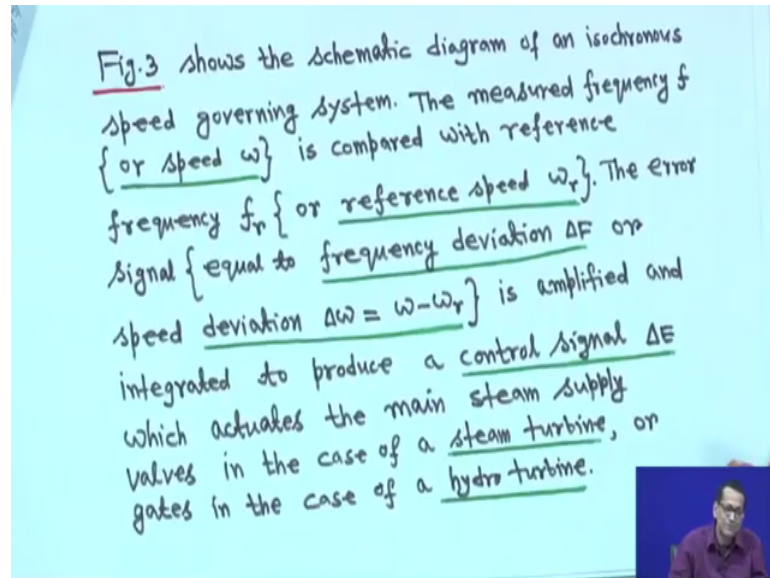 Fig.3 shows the schematic diagram of an isochronous
speed governing system. The measured frequency f
{or speed ω} is compared with reference
frequency fr {or reference speed ωr}. The error
signal {equal to frequency deviation ΔF or
speed deviation Δω = ω-ωr} is amplified and
integrated to produce a control signal ΔE
which actuates the main steam supply
valves in the case of a steam turbine, or
gates in the case of a hydro turbine.